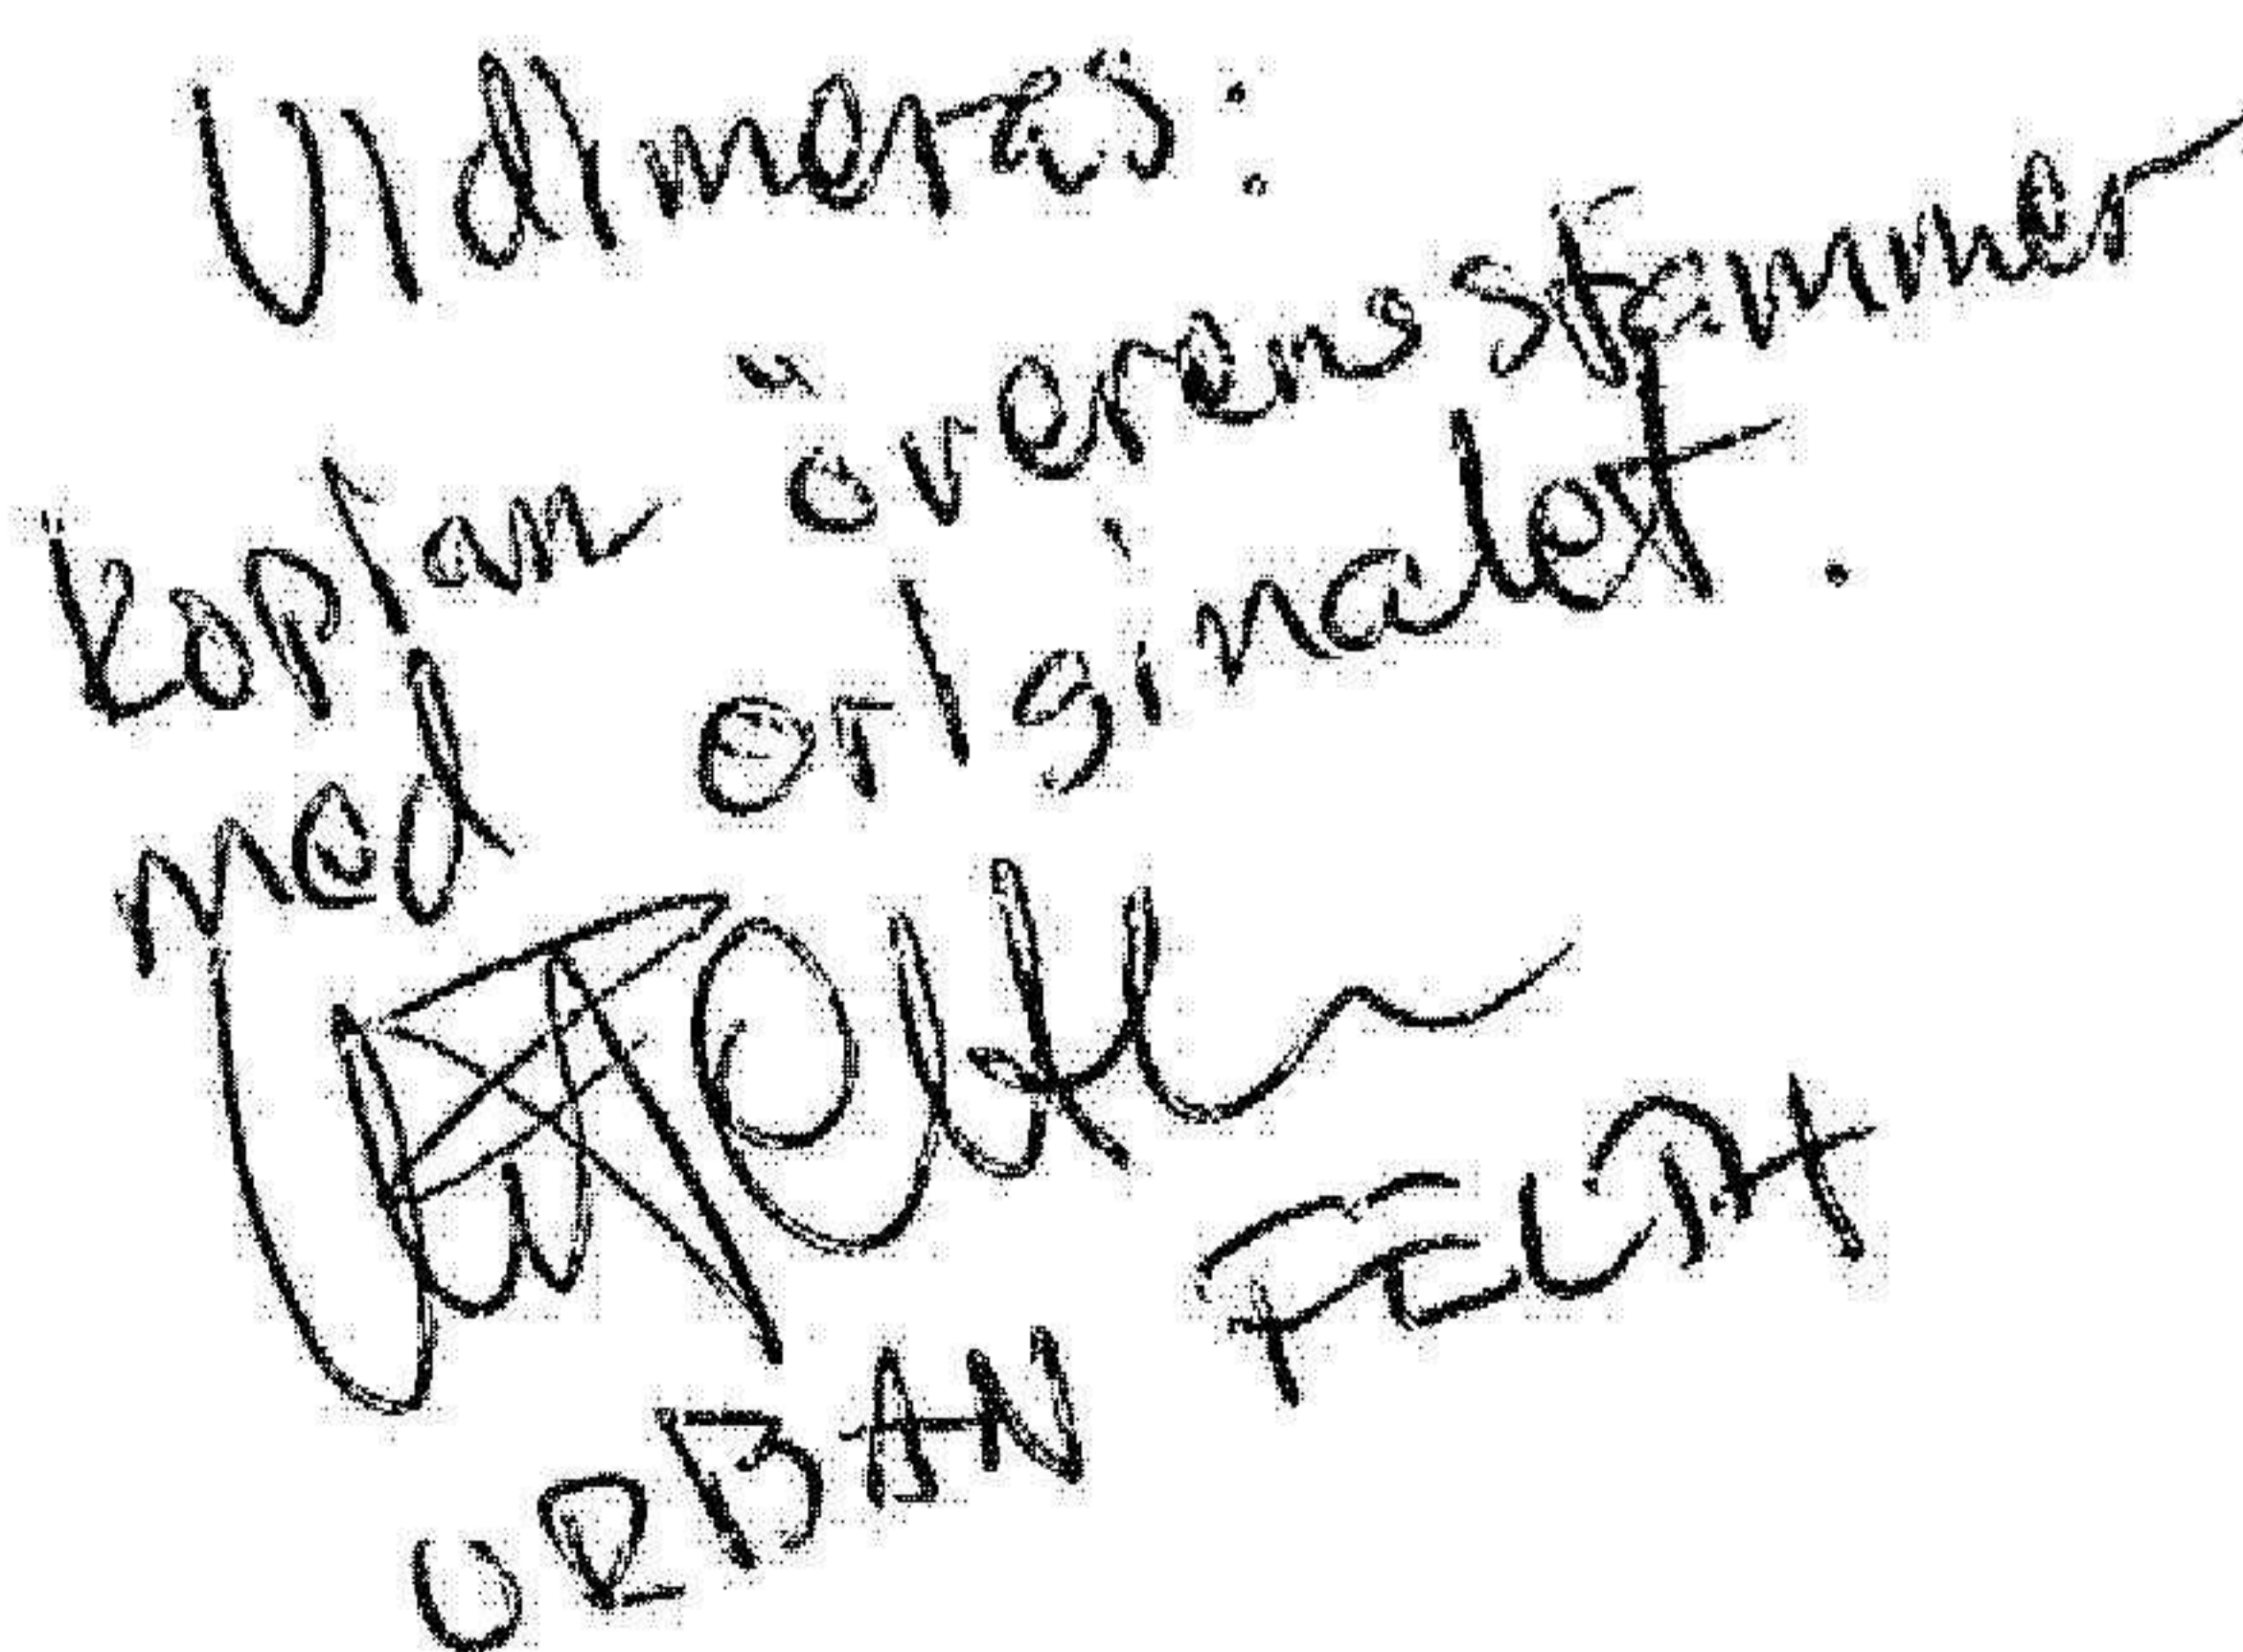 Vidimeras:
kopian överensstämmer
med originalet.
URBAN FELDT